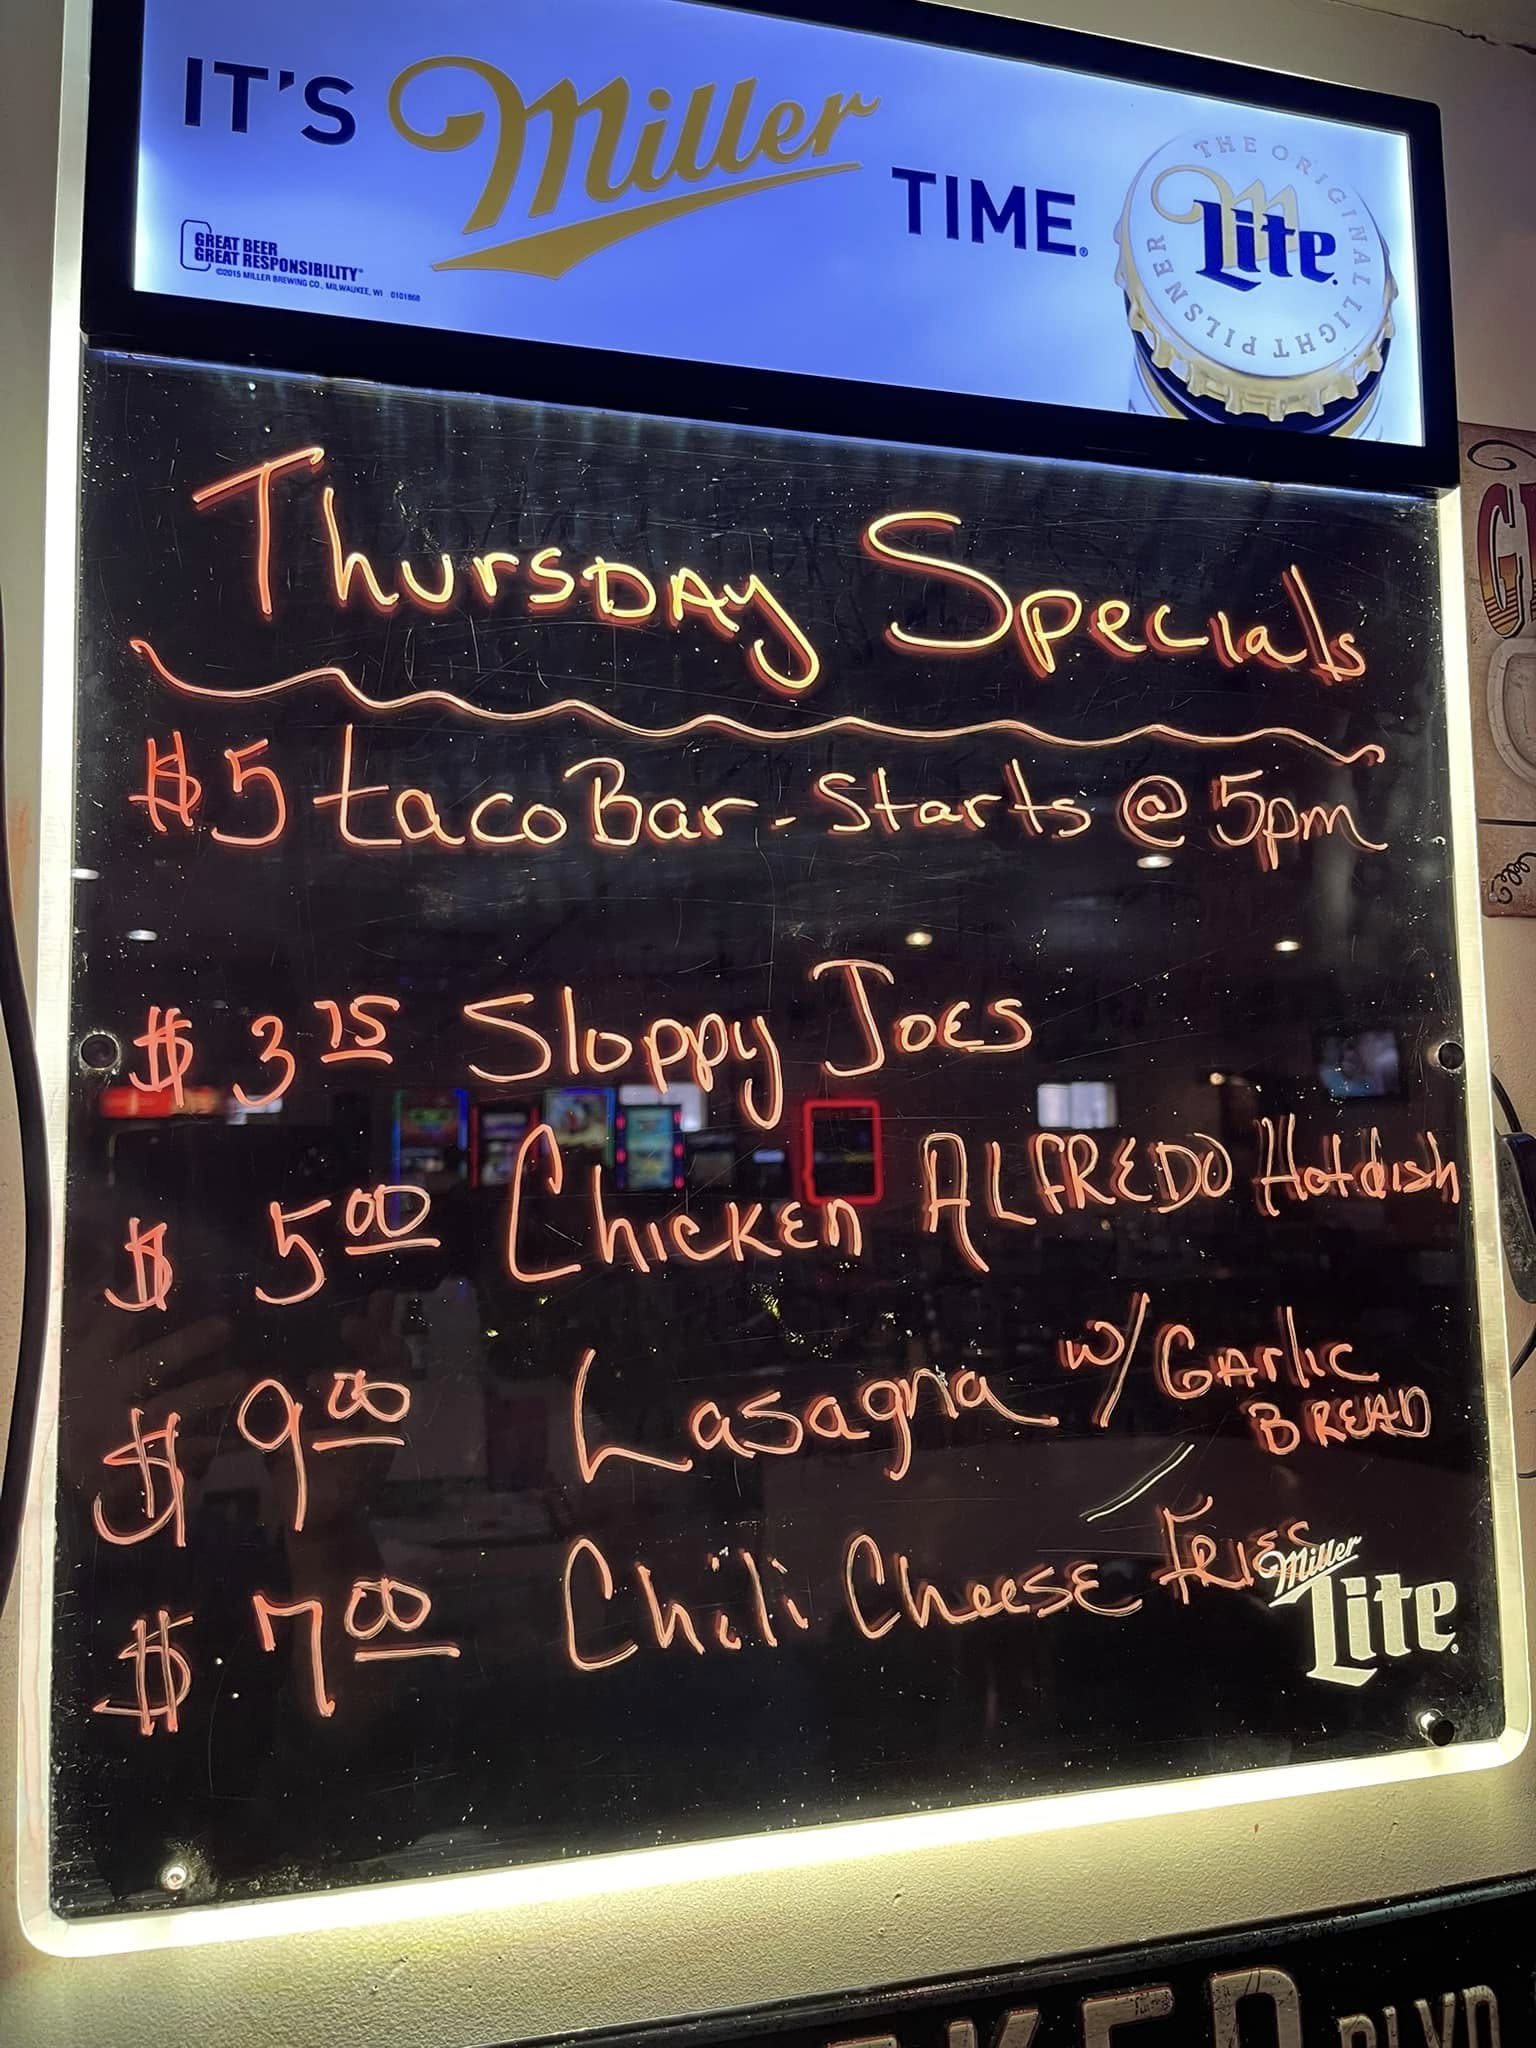 IT'S Miller TIME®
THE ORIGINAL LIGHT PILSNER
Lite
GREAT BEER
GREAT RESPONSIBILITY®
©2015 MILLER BREWING CO., MILWAUKEE, WI 0101868
Thursday Specials
$5 taco Bar - Starts @ 5pm
$ 3 75 Sloppy Joes
$ 5 00 Chicken ALFREDO Hotdish
$ 9 00 Lasagna w/ Garlic
BREAD
$ 7 00 Chili Cheese Fries
Miller
Lite
BLVD